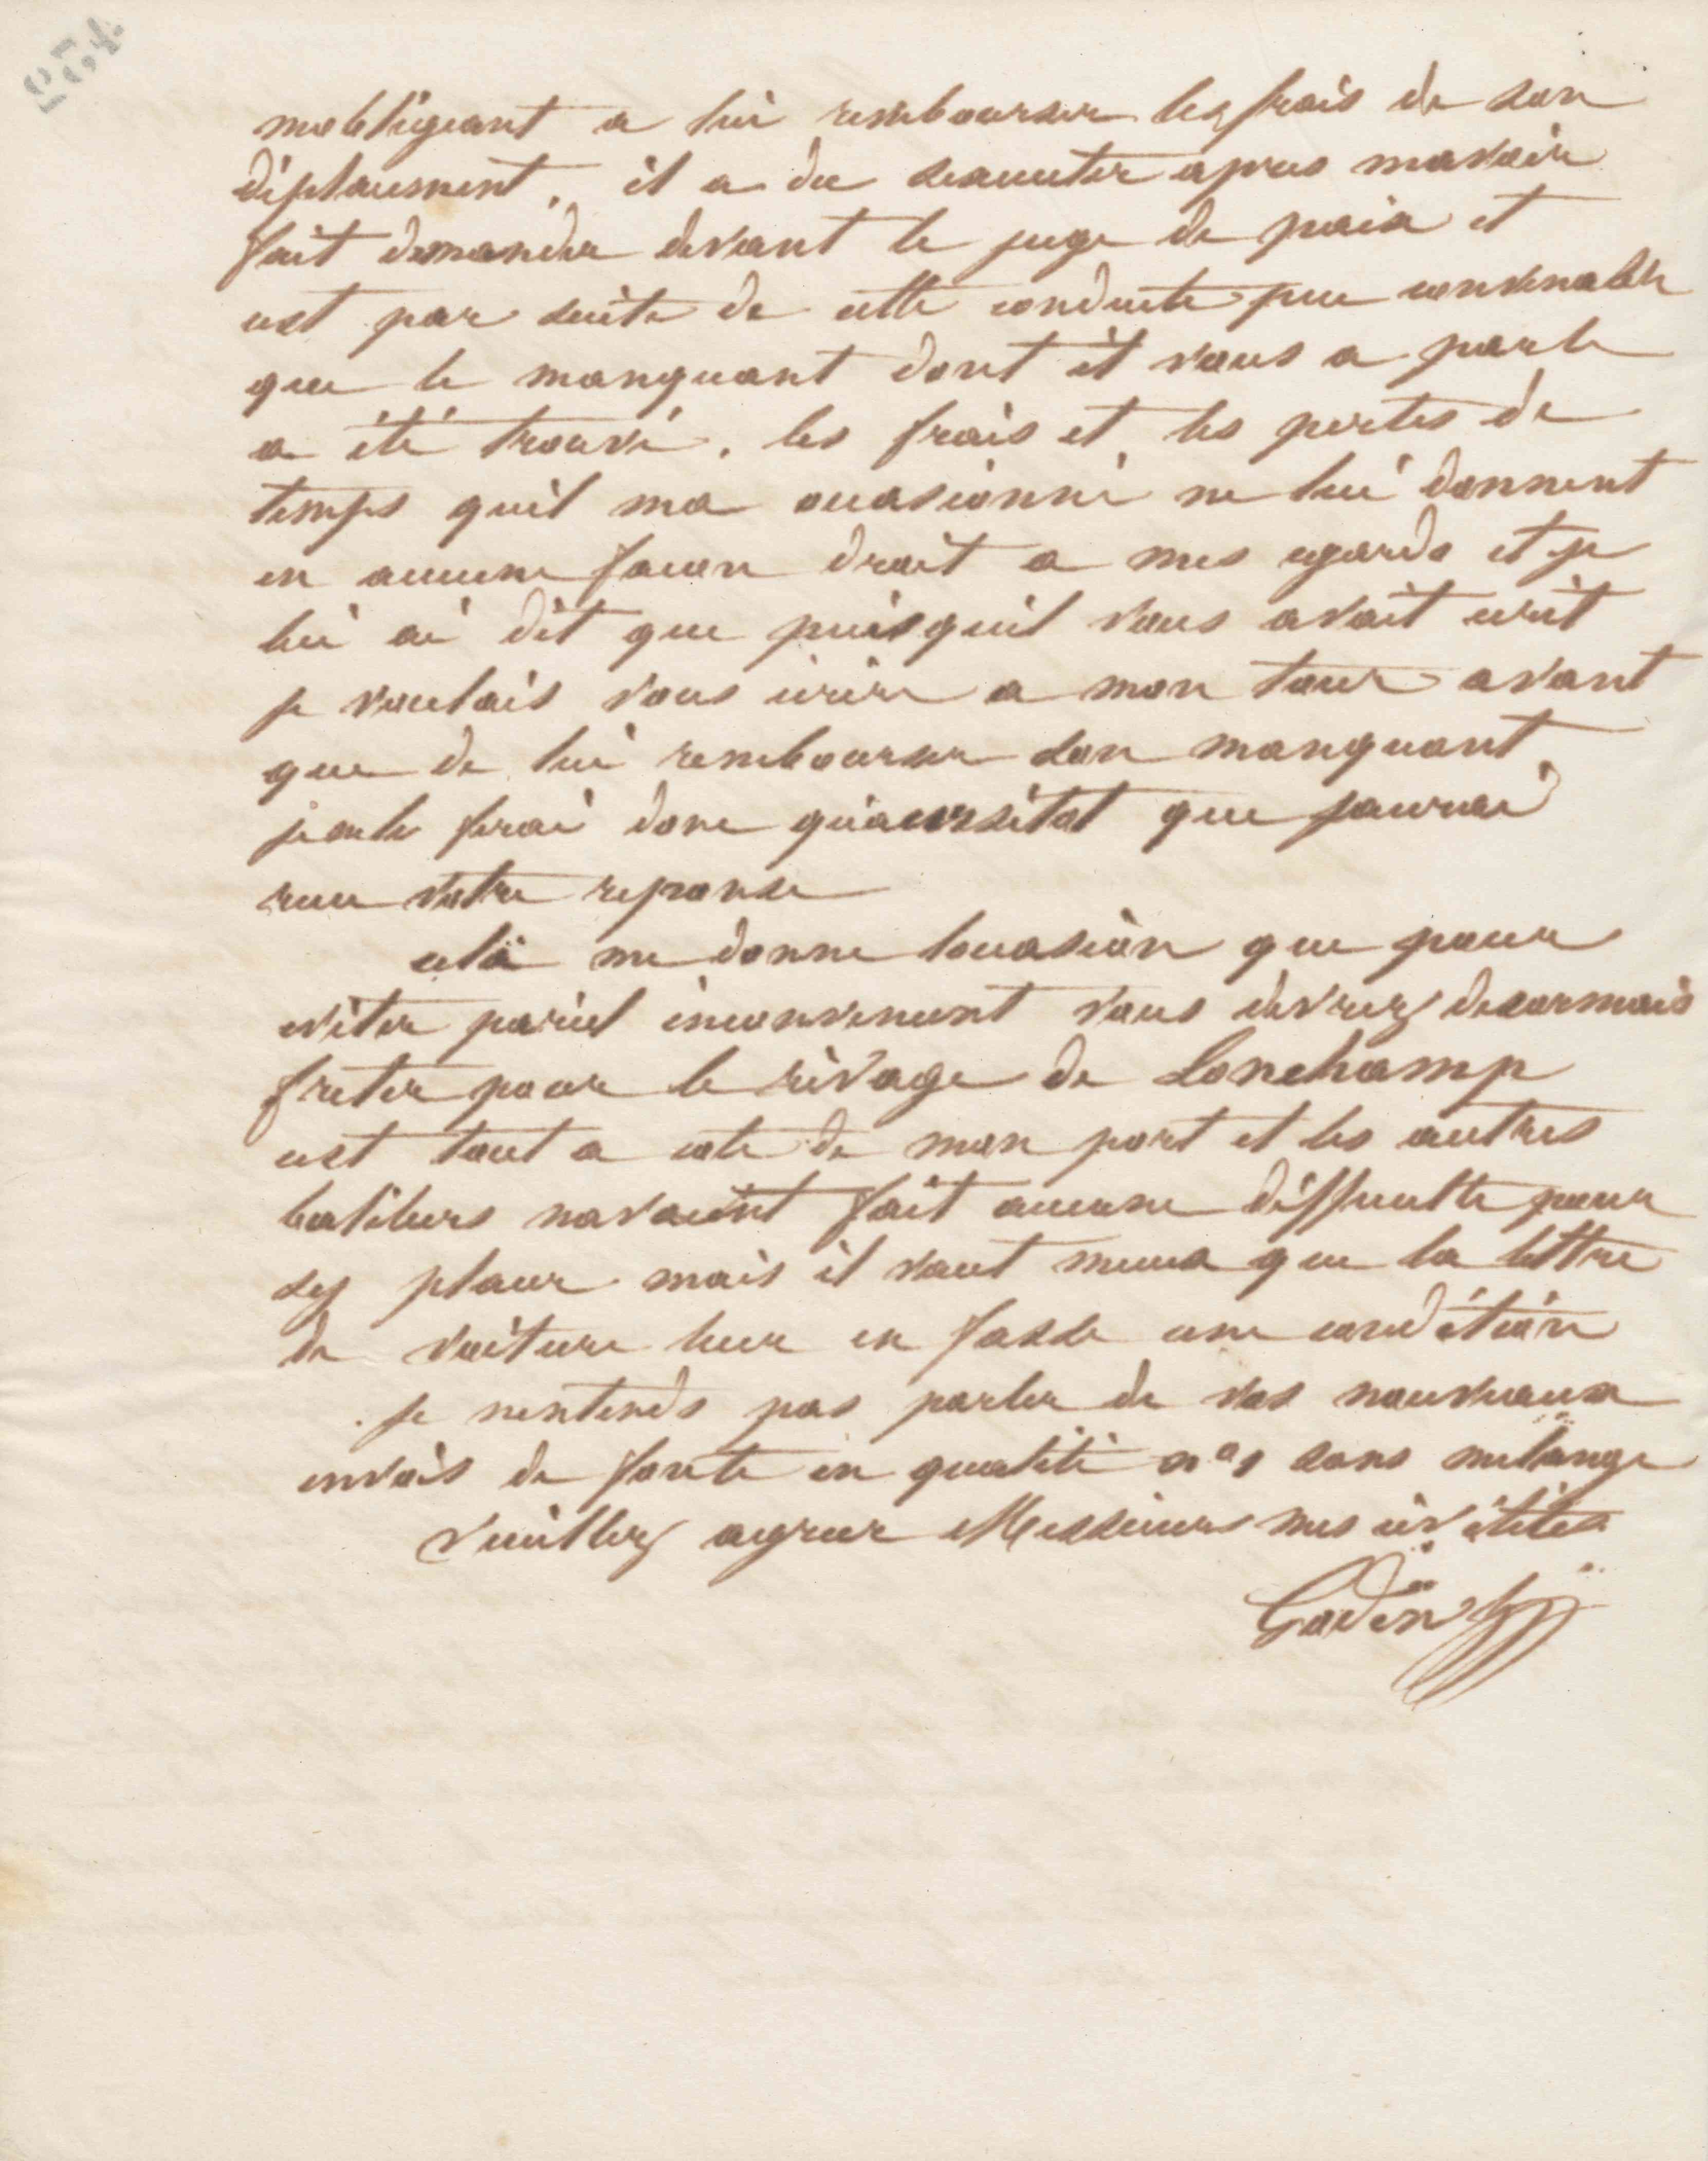 mobligeant a lui rembourser les frais de son
déplacement, il a du sexecuter apres mavoir
fait demander devant le juge de paix et
cest par suite de cette conduite peu convenable
que le manquant dont il vous a parlé
a été trouvé. les frais et les pertes de
temps quil ma occasionné ne lui donnent
en aucune facon droit a mes egards et je
lui ai dit que puisquil vous avait ecrit
je voulais vous ecrire a mon tour avant
que de lui rembourser son manquant
je ne le ferai donc quaussitot que jaurai
recu votre reponse
cela me donne loccasion que pour
eviter pareil inconvenient vous devrez desormais
freter pour le rivage de Lonchamp
cest tout a coté de mon port et les autres
bateliers navaient fait aucune difficulté pour
sy placer mais il vaut mieux que la lettre
de voiture leur en fasse une condition
je nentends pas parler de vos nouveaux
envois de fonte en qualité no 1 sans melange
Veuillez agreer Messieurs mes civilités
Godin
254